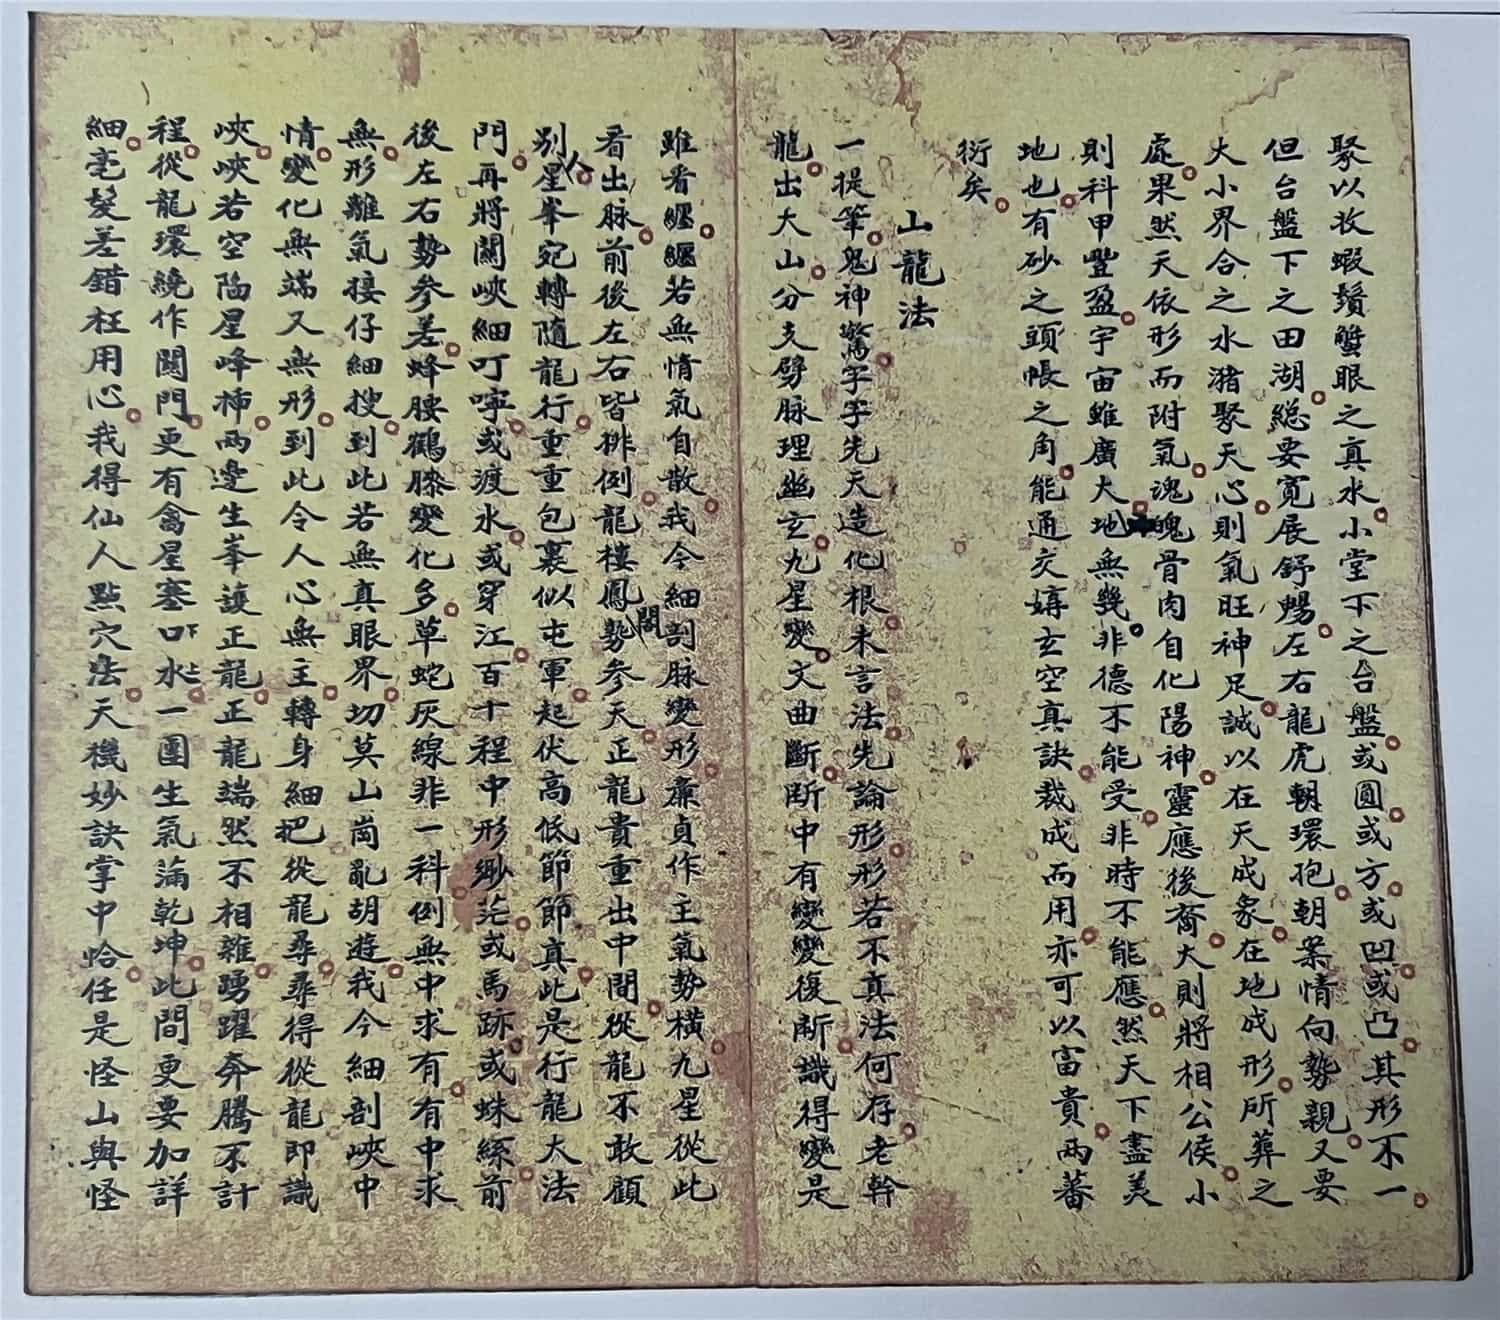 聚以收蝦鬚蟹眼之真水小堂下之台盤或圓或方或凹或凸其形不一
但台盤下之田湖總要寬展舒暢左右龍虎朝環抱朝案情向勢親又要
大小界合之水瀦聚天心則氣旺神足誠以在天成象在地成形所葬之
處果然天依形而附氣魂魄骨肉自化陽神靈應後裔大則將相公侯小
則科甲豐盈宇宙雖廣大地無幾非德不能受非時不能應然天下盡美
地也有砂之頭帳之角能通交媾玄空真訣裁成而用亦可以富貴兩蕃
衍矣
山龍法
一提筆鬼神驚字字先天造化根未言法先論形形若不真法何存老幹
龍出大山分支劈脉理幽玄九星變文曲斷斷中有變變復斷識得變是
雖看纏纏若無情氣自散我今細剖脉變形廉貞作主氣勢橫九星從此
看出脉前後左右皆排例龍樓鳳閣勢參天正龍貴重出中間從龍不敢顧
別人星峯宛轉隨龍行重重包裹似屯軍起伏高低節節真此是行龍大法
門再將關峽細叮嚀或渡水或穿江百十程中形緲茫或馬跡或蛛絲前
後左右勢參差蜂腰鶴膝變化多草蛇灰線非一科例無中求有有中求
無形離氣接仔細搜到此若無真眼界切莫山崗亂胡遊我今細剖峽中
情變化無端又無形到此令人心無主轉身細把從龍尋尋得從龍即識
峽峽若空陷星峰揷兩邊生峯護正龍正龍端然不相雜踴躍奔騰不計
程從龍環繞作關門更有禽星塞口水一團生氣滿乾坤此間更要加詳
細毫髮差錯枉用心我得仙人點穴法天機妙訣掌中恰任是怪山與怪